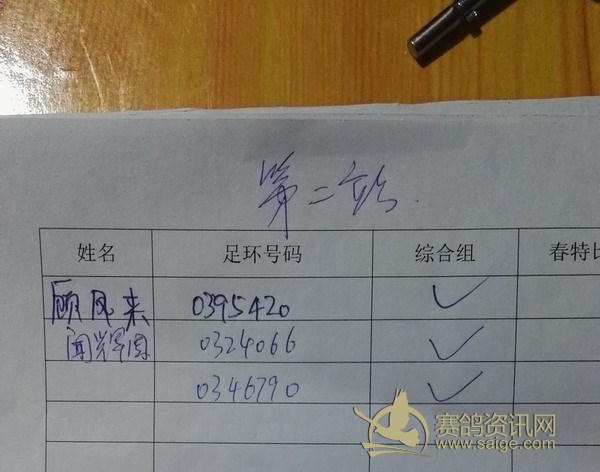 第二站
姓名 足环号码 综合组 春特比
顾凤来 0395420 ✓
闻辉国 0324066 ✓
0346790 ✓
赛鸽资讯网
www.saige.com